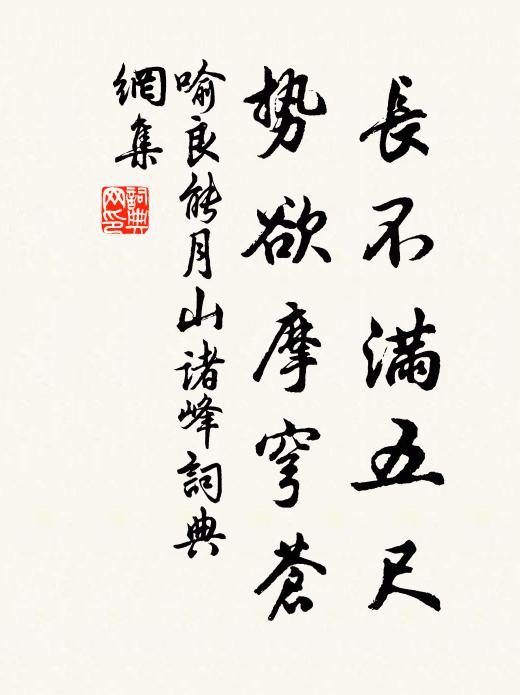 長不滿五尺
勢欲摩穹蒼
喻良能月山諸峰詞典
網集
詞典網印